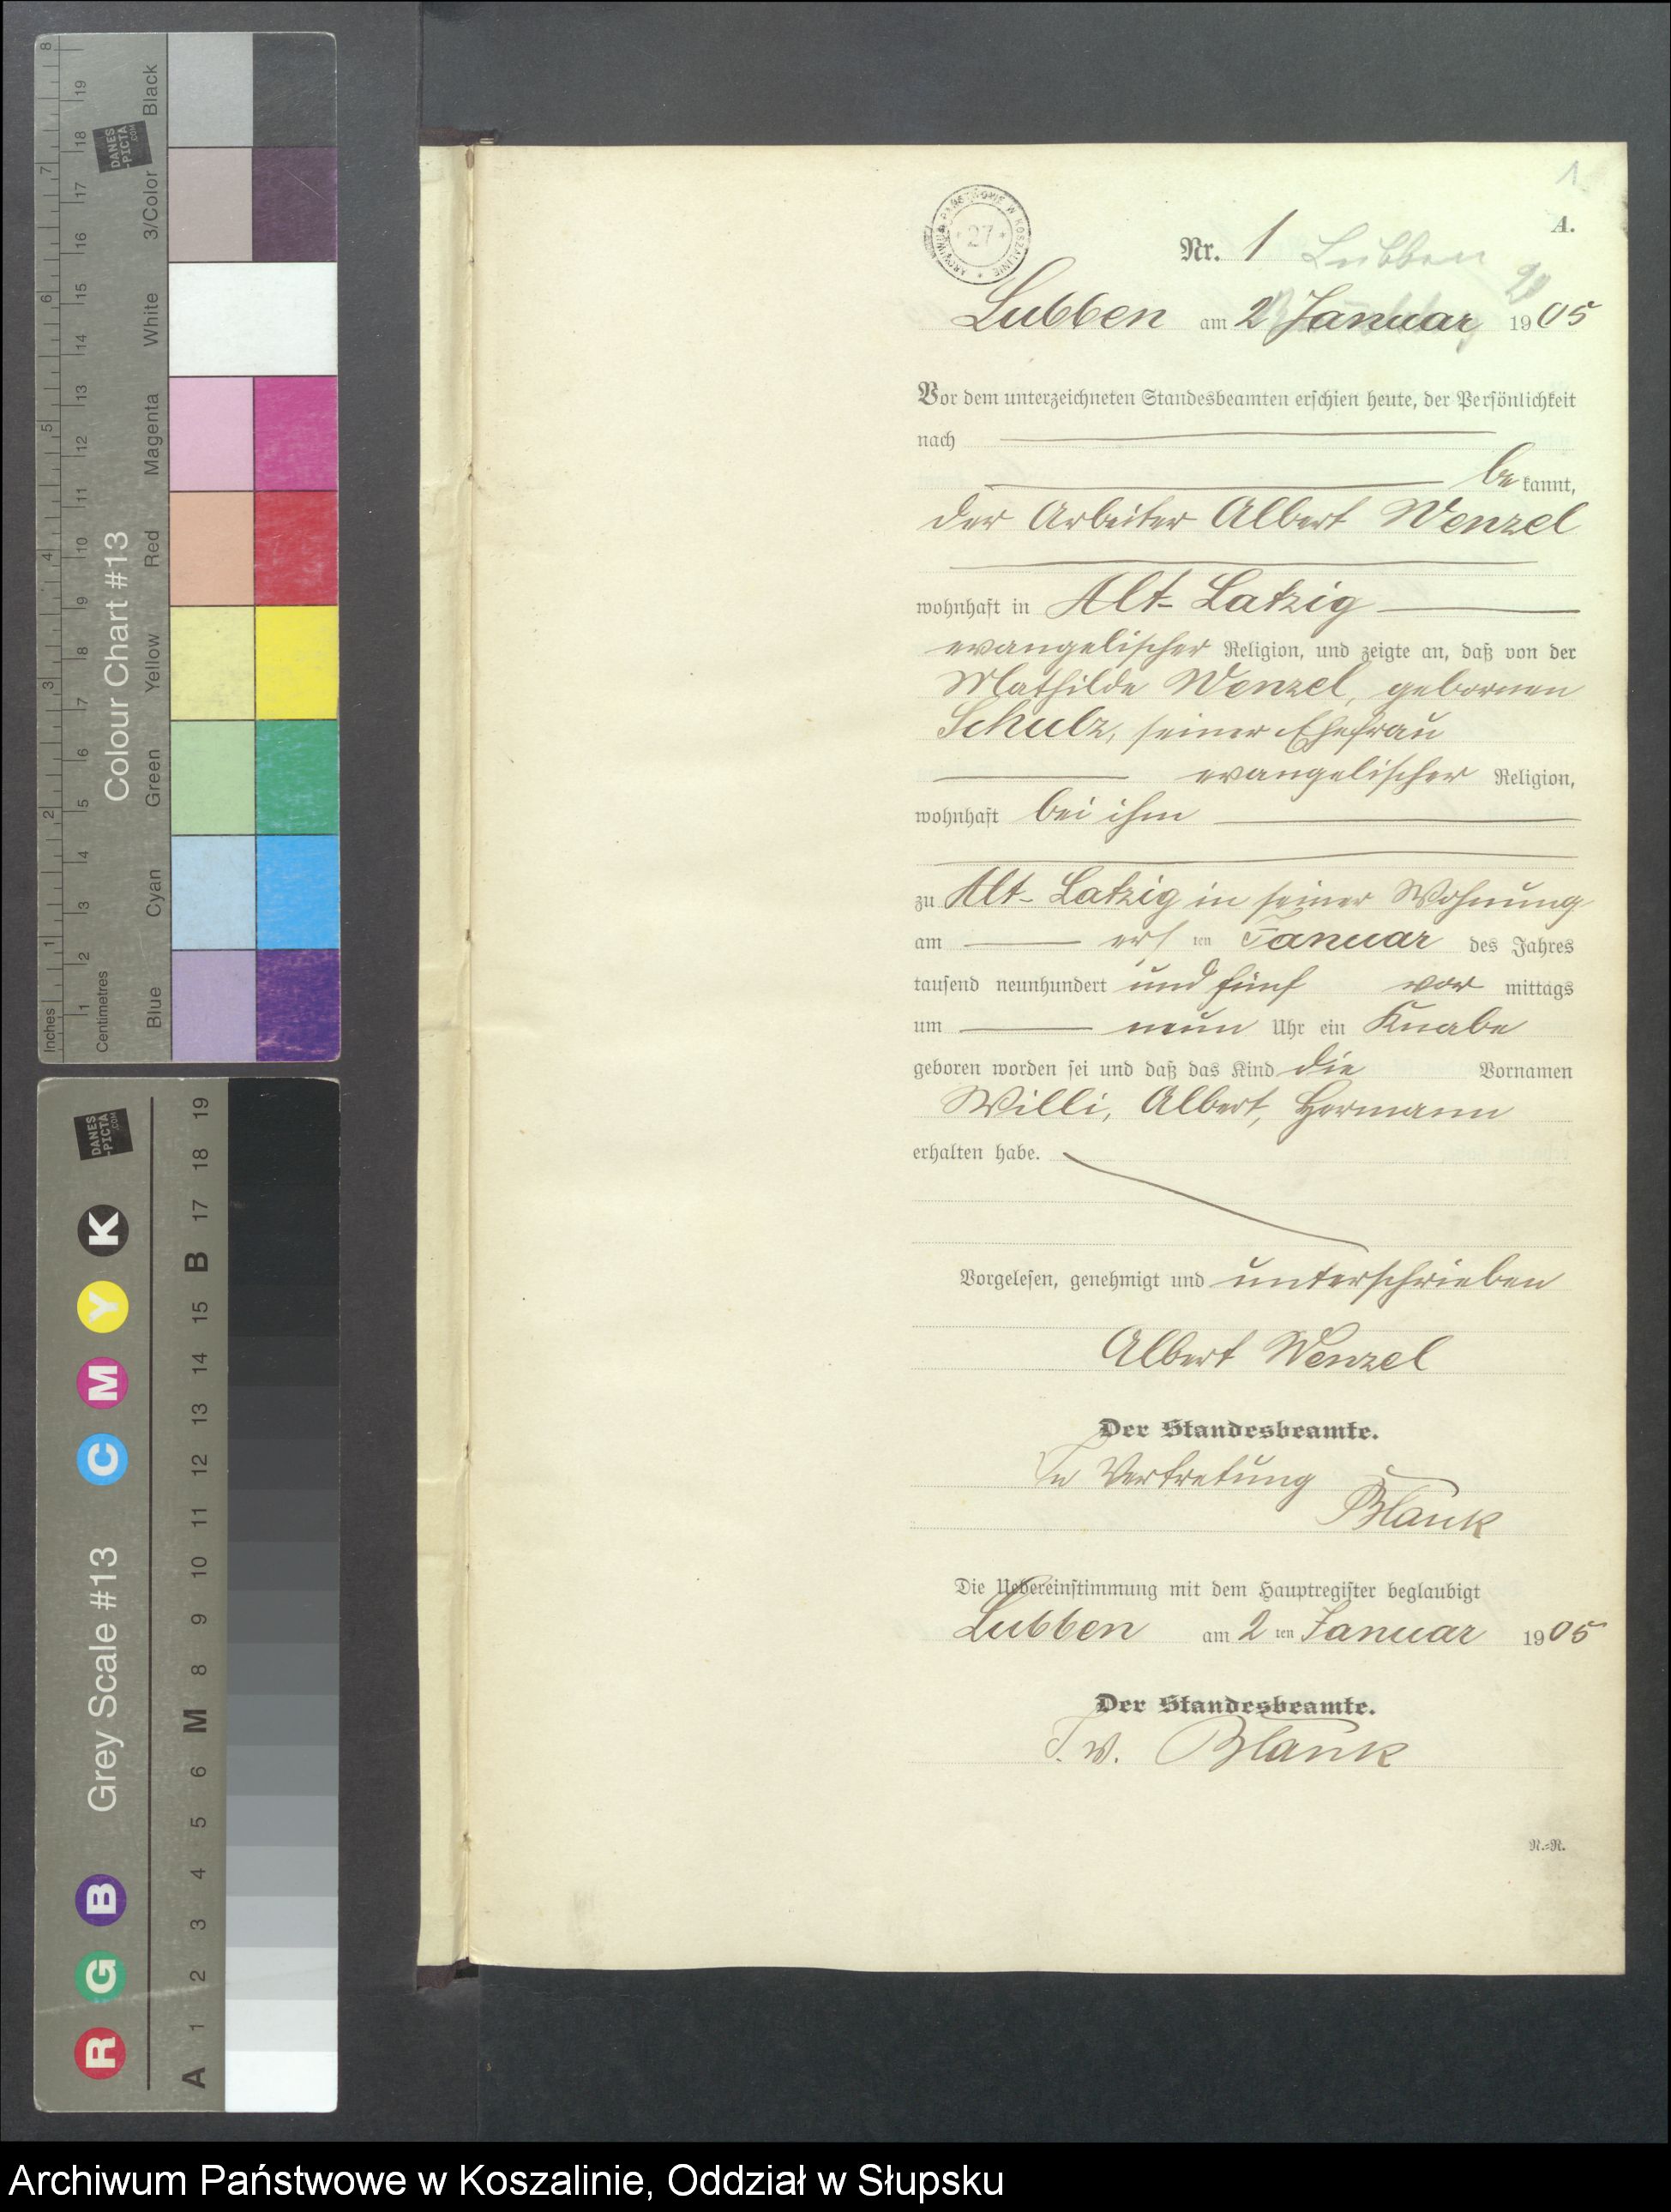 1
A.
ARCHIWUM PAŃSTWOWE W KOSZALINIE
27
Nr. 1 Lubben
Lubben am 2 Januar 1905
Vor dem unterzeichneten Standesbeamten erschien heute, der Persönlichkeit
nach
be kannt,
der Arbeiter Albert Wenzel
wohnhaft in Alt-Latzig
evangelischer Religion, und zeigte an, daß von der
Mathilde Wenzel, gebornen
Schulz, seiner Ehefrau
evangelischer Religion,
wohnhaft bei ihm
zu Alt-Latzig in seiner Wohnung
am ers ten Januar des Jahres
tausend neunhundert und fünf vor mittags
um neun Uhr ein Knabe
geboren worden sei und daß das Kind die Vornamen
Willi, Albert, Hermann
erhalten habe.
Vorgelesen, genehmigt und unterschrieben
Albert Wenzel
Der Standesbeamte.
In Vertretung
Blank
Die Uebereinstimmung mit dem Hauptregister beglaubigt
Lubben am 2 ten Januar 1905
Der Standesbeamte.
I. V. Blank
R.=R.
Colour Chart #13
Inches 1 2 3 4 5 6 7 8
Centimetres 1 2 3 4 5 6 7 8 9 10 11 12 13 14 15 16 17 18 19
Blue Cyan Green Yellow Red Magenta White 3/Color Black
DANES
-PICTA
.COM
Grey Scale #13
R G B C M Y K
A 1 2 3 4 5 6 M 8 9 10 11 12 13 14 15 B 17 18 19
DANES
-PICTA
.COM
Archiwum Państwowe w Koszalinie, Oddział w Słupsku